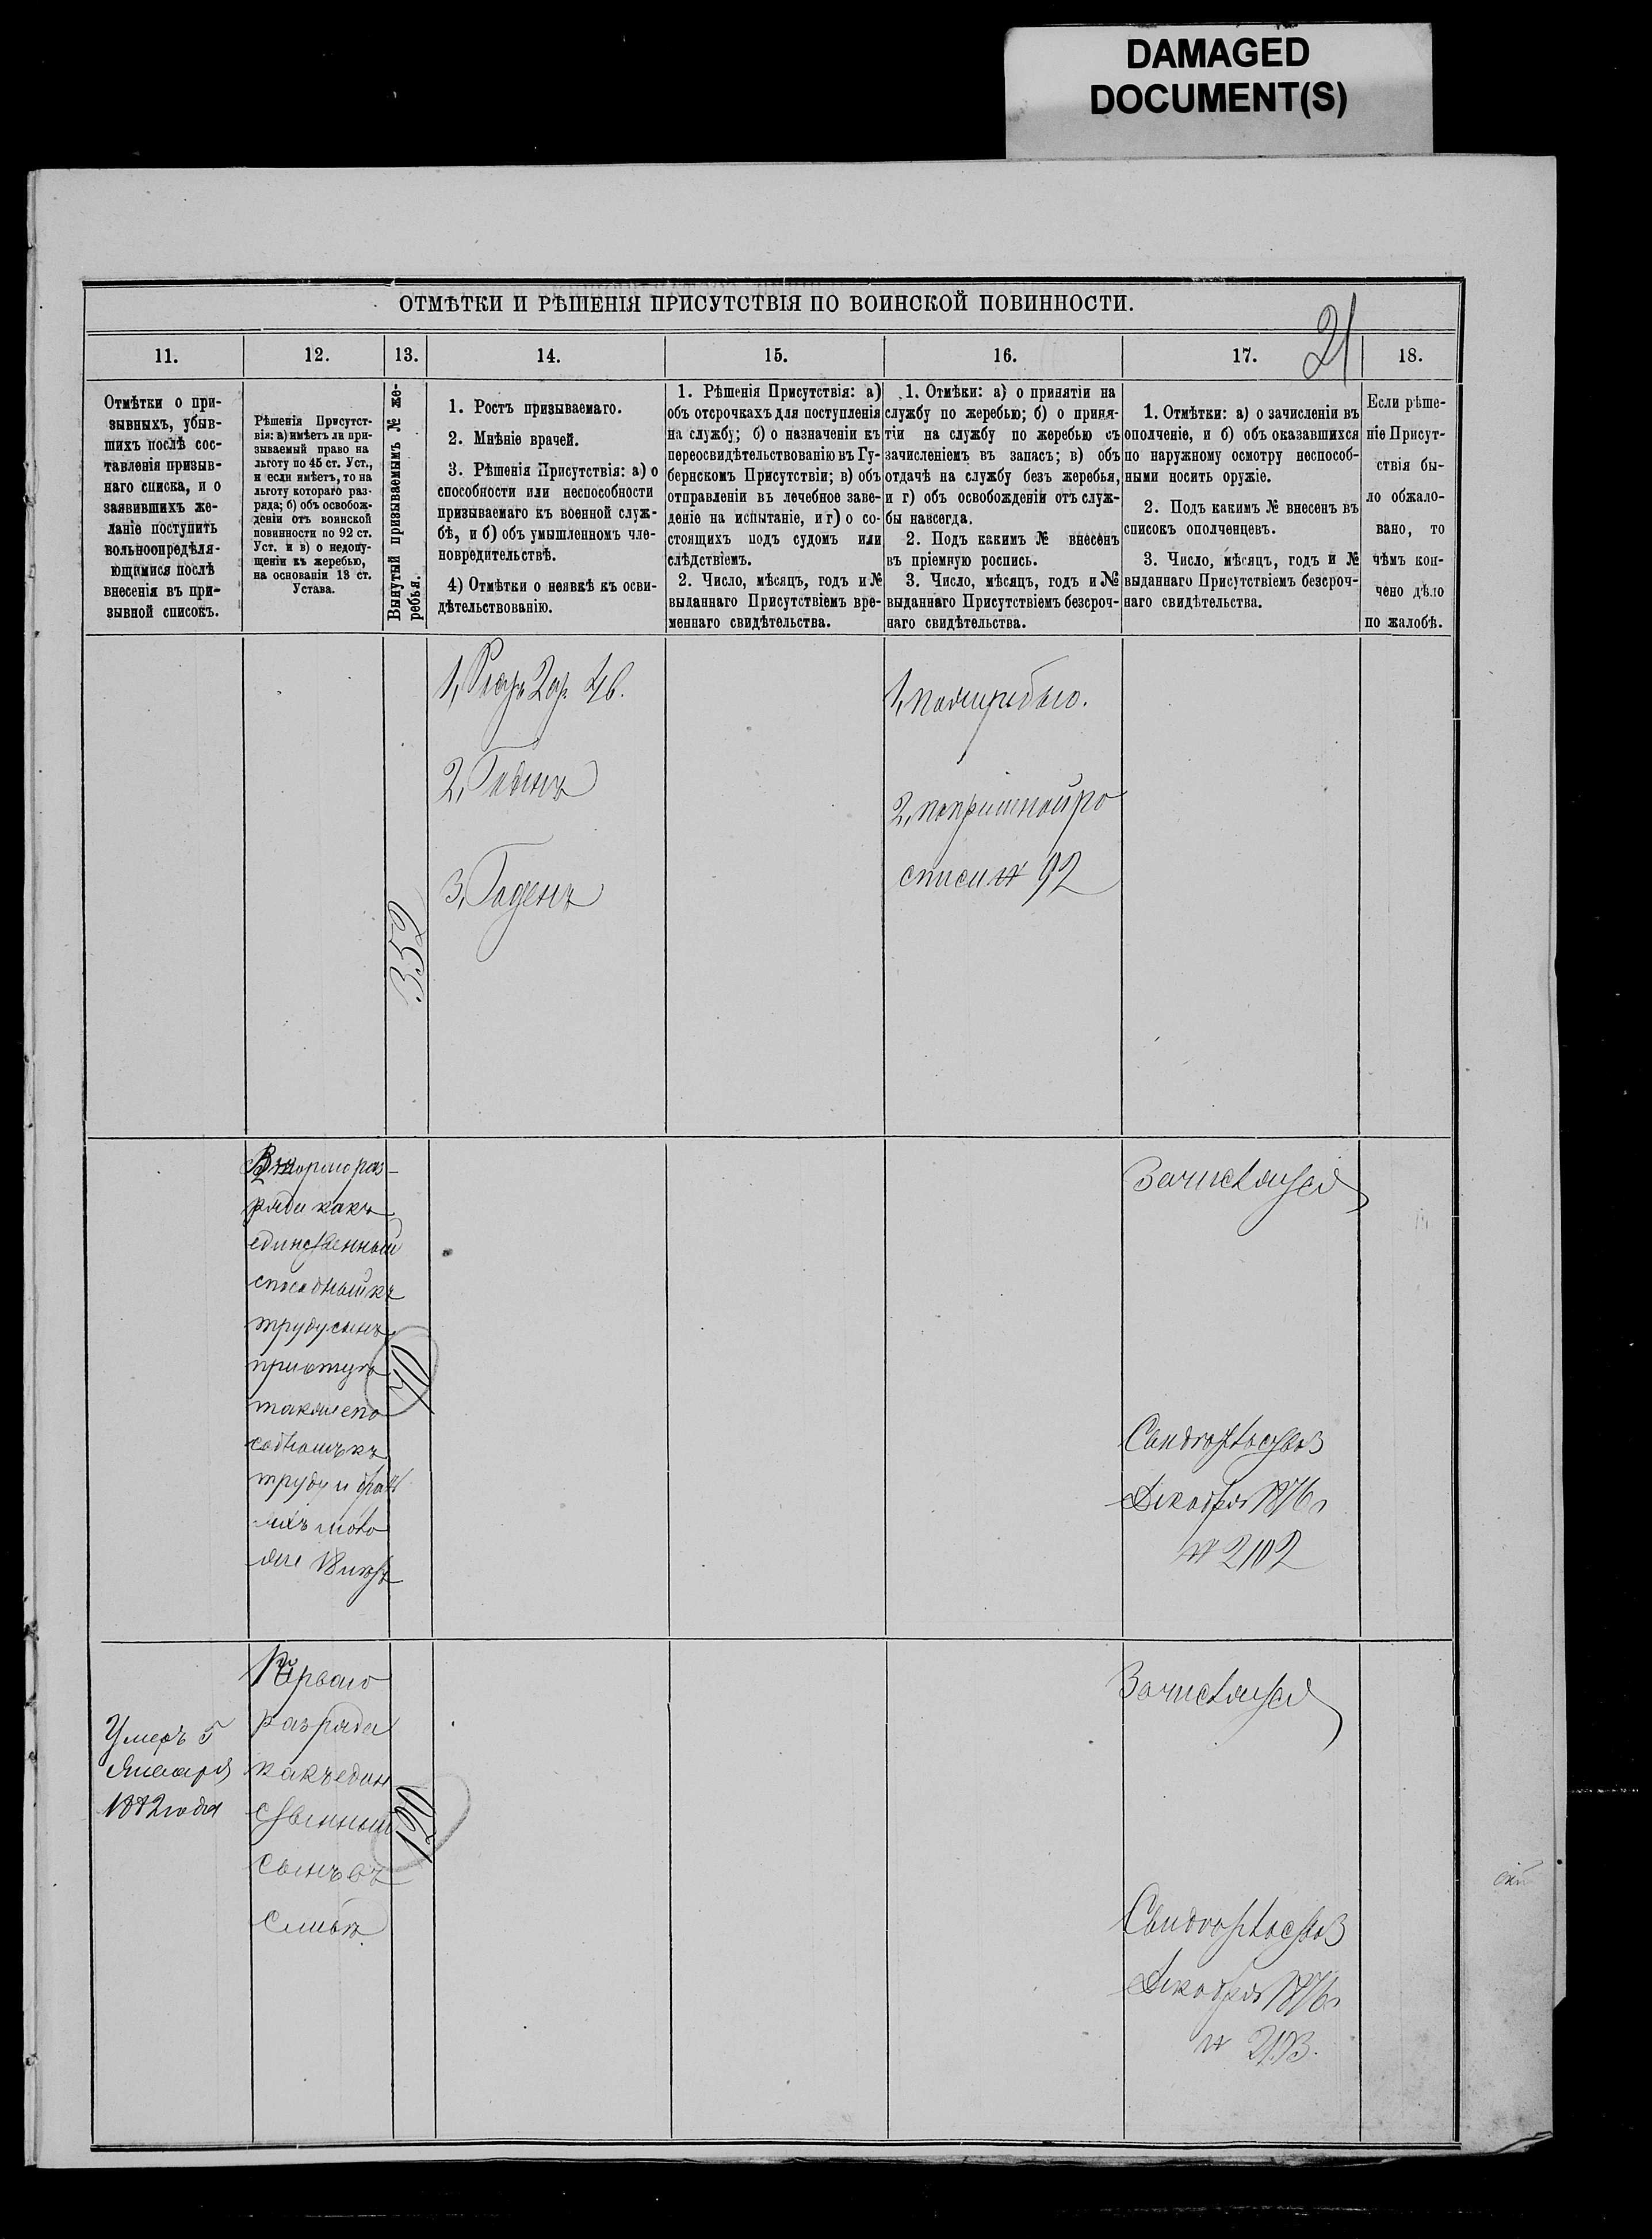 DAMAGED
DOCUMENT(S)
ОТМѢТКИ И РѢШЕНІЯ ПРИСУТСТВІЯ ПО ВОИНСКОЙ ПОВИННОСТИ.
21
11.
12.
13.
14.
15.
16.
17.
18.
Отмѣтки о при-
зывныхъ, убыв-
шихъ послѣ сос-
тавленія призыв-
наго списка, и о
заявившихъ же-
ланіе поступить
вольноопредѣля-
ющимися послѣ
внесенія въ при-
зывной списокъ.
Рѣшенія Присутст-
вія: а) имѣетъ ли при-
зываемый право на
льготу по 45 ст. Уст.,
и если имѣетъ, то на
льготу котораго раз-
ряда; б) объ освобож-
деніи отъ воинской
повинности по 92 ст.
Уст. и в) о недопу-
щеніи къ жеребью,
на основаніи 13 ст.
Устава.
Вынутый призываемымъ № же-
ребья.
1. Ростъ призываемаго.
2. Мнѣніе врачей.
3. Рѣшенія Присутствія: а) о
способности или неспособности
призываемаго къ военной служ-
бѣ, и б) объ умышленномъ чле-
новредительствѣ.
4) Отмѣтки о неявкѣ къ осви-
дѣтельствованію.
1. Рѣшенія Присутствія: а)
объ отсрочкахъ для поступленія
на службу; б) о назначеніи къ
переосвидѣтельствованію въ Гу-
бернскомъ Присутствіи; в) объ
отправленіи въ лечебное заве-
деніе на испытаніе, и г) о со-
стоящихъ подъ судомъ или
слѣдствіемъ.
2. Число, мѣсяцъ, годъ и №
выданнаго Присутствіемъ вре-
меннаго свидѣтельства.
1. Отмѣки: а) о принятіи на
службу по жеребью; б) о приня-
тіи на службу по жеребью съ
зачисленіемъ въ запасъ; в) объ
отдачѣ на службу безъ жеребья,
и г) объ освобожденіи отъ служ-
бы навсегда.
2. Подъ какимъ № внесенъ
въ пріемную роспись.
3. Число, мѣсяцъ, годъ и №
выданнаго Присутствіемъ безсроч-
наго свидѣтельства.
1. Отмѣтки: а) о зачисленіи въ
ополченіе, и б) объ оказавшихся
по наружному осмотру неспособ-
ными носить оружіе.
2. Подъ какимъ № внесенъ въ
списокъ ополченцевъ.
3. Число, мѣсяцъ, годъ и №
выданнаго Присутствіемъ безсроч-
наго свидѣтельства.
Если рѣше-
ніе Присут-
ствія бы-
ло обжало-
вано, то
чѣмъ кон-
чено дѣло
по жалобѣ.
352
1, Ростъ 2 ар. 4 в.
2, Годенъ
3, Годенъ
1, по жеребью.
2, по пріемной ро
списи № 92
Втораго раз-
ряда какъ
единственный
способный къ
труду сынъ
при отцѣ
также спо
собномъ къ
труду и
18 лѣтъ
40
Зачисляется
Свидѣтельство 3
Декабря 1876 г
№ 2102
Умеръ 5
Января
1882 года
Перваго
разряда
какъ един
ственный
сынъ въ
семьѣ.
120
Зачисляется
Свидѣтельство 3
Декабря 1876 г
№ 2193.